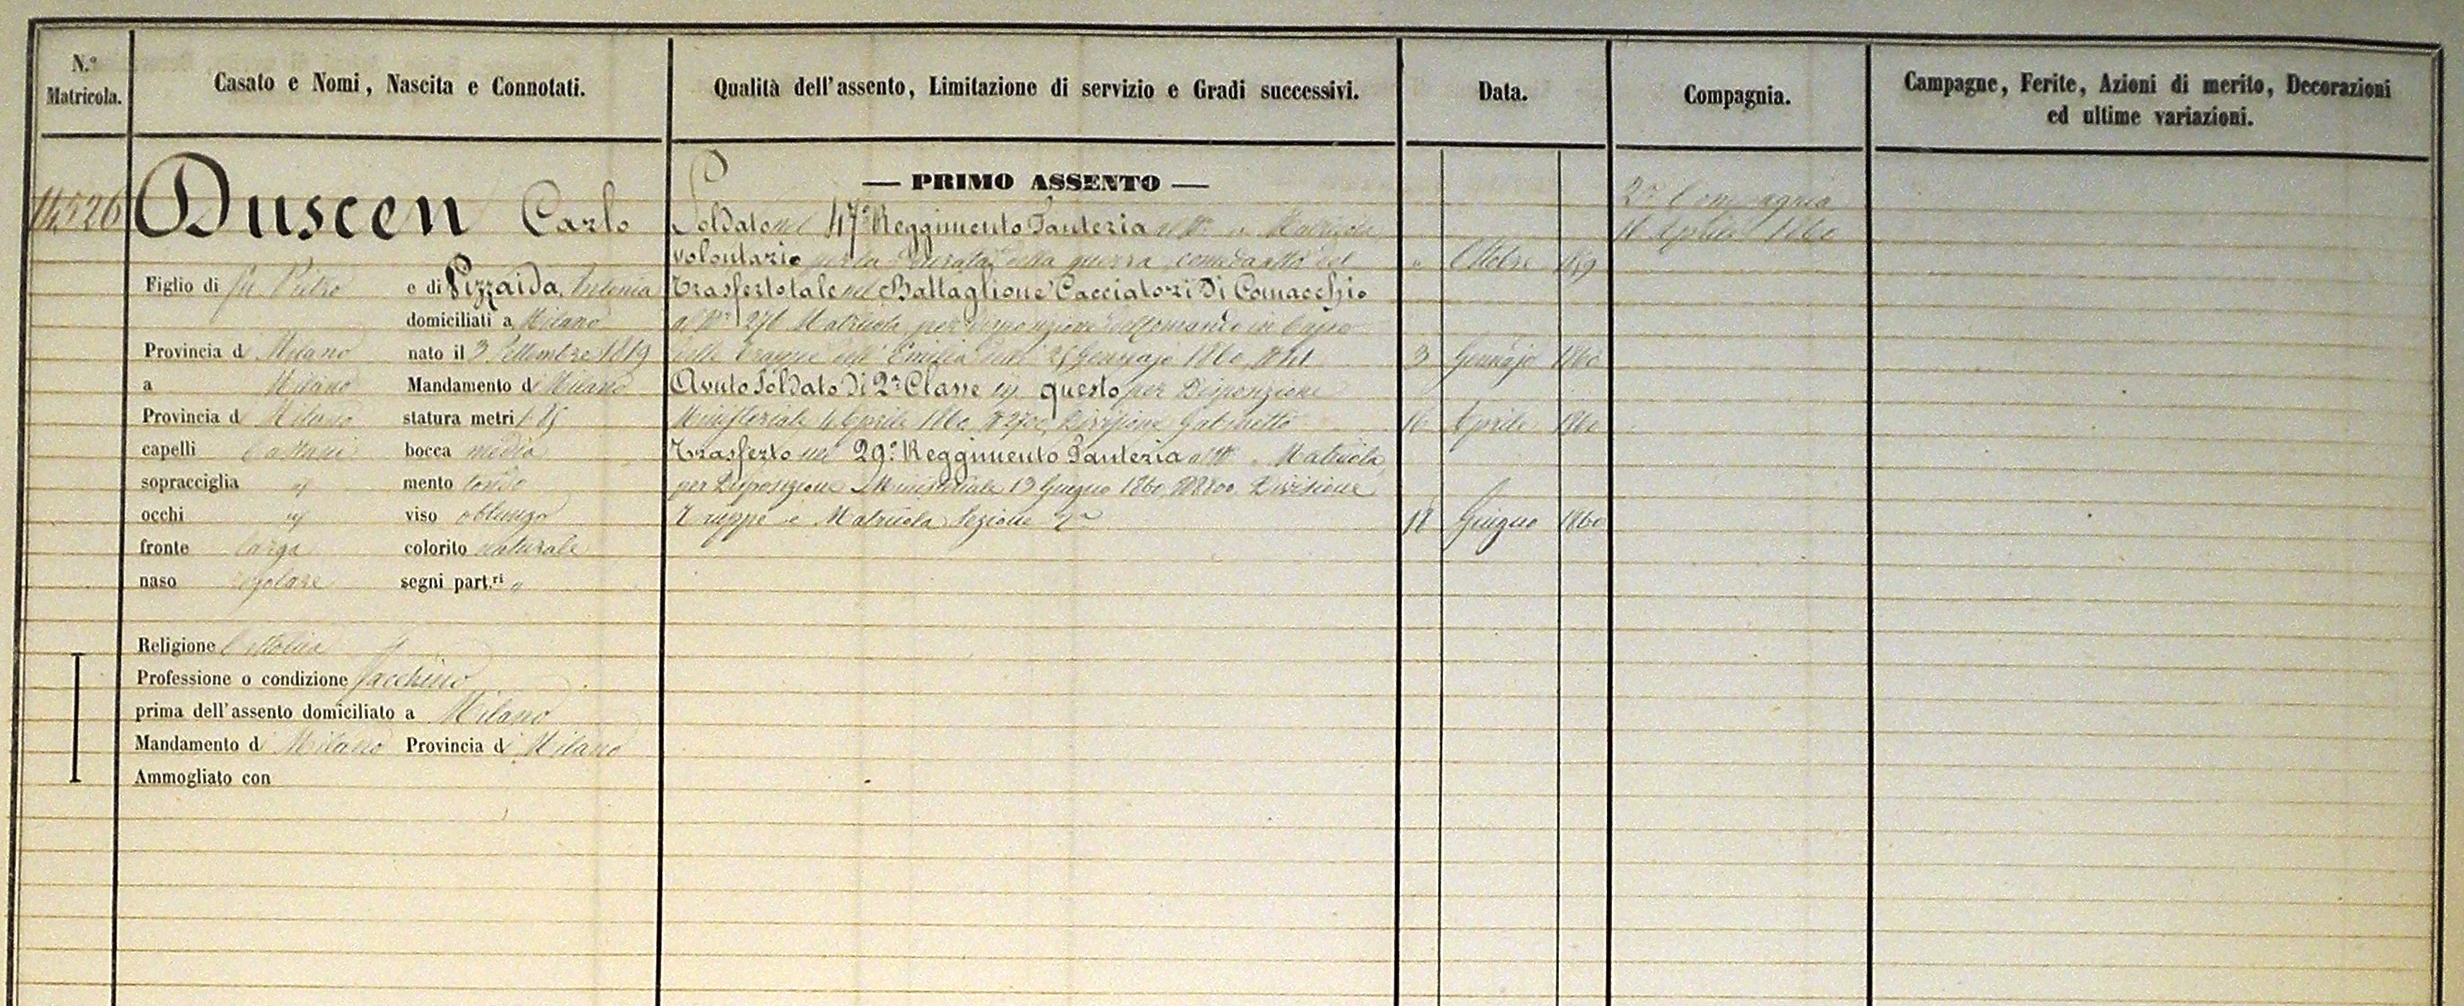 N.º Matricola.
Casato e Nomi, Nascita e Connotati.
Qualità dell'assento, Limitazione di servizio e Gradi successivi.
Data.
Compagnia.
Campagne, Ferite, Azioni di merito, Decorazioni
ed ultime variazioni.
14526
Duscen Carlo
Figlio di fu Pietro e di Pizzaida Antonia
domiciliati a Milano
Provincia di Milano nato il 3 Settembre 1819
a Milano Mandamento di Milano
Provincia di Milano statura metri 1 85
capelli Castani bocca media
sopracciglia id mento tondo
occhi id viso oblungo
fronte larga colorito naturale
naso regolare segni part.ri "
Religione Cattolica
Professione o condizione Facchino
prima dell'assento domiciliato a Milano
Mandamento di Milano Provincia di Milano
Ammogliato con
— PRIMO ASSENTO —
Soldato nel 47º Reggimento Fanteria al Nº " Matricola
volontario per la durata della guerra come da atto del " Ottobre 1859
Trasferto tale nel Battaglione Cacciatori Di Comacchio
al Nº 276 Matricola per disposizione del Comando in Capo
delle Truppe dell' Emilia del 25 Gennajo 1860 3 Gennajo 1860
Avuto Soldato Di 2ª Classe in questo per Disposizione
Ministeriale 4 Aprile 1860 Nº 2700 Divisione Gabinetto 16 Aprile 1860
Trasferto nel 29º Reggimento Fanteria al Nº " Matricola
per Disposizione Ministeriale 13 Giugno 1860 Nº 8800 Divisione
Truppe e Matricola Sezione 2ª 18 Giugno 1860
2ª Compagnia
16 Aprile 1860